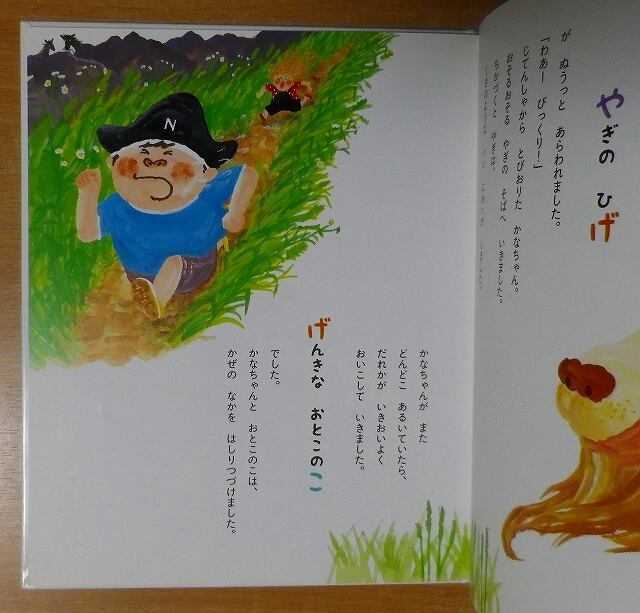 やぎの ひげ
が ぬうっと あらわれました。
「わあー びっくりー！」
じてんしゃから とびおりた かなちゃん。
おそるおそる やぎの そばへ いきました。
ちかづくと やぎは、
かなちゃんが また
どんどこ あるいていたら、
だれかが いきおいよく
おいこして いきました。
げんきな おとこのこ
でした。
かなちゃんと おとこのこは、
かぜの なかを はしりつづけました。
N